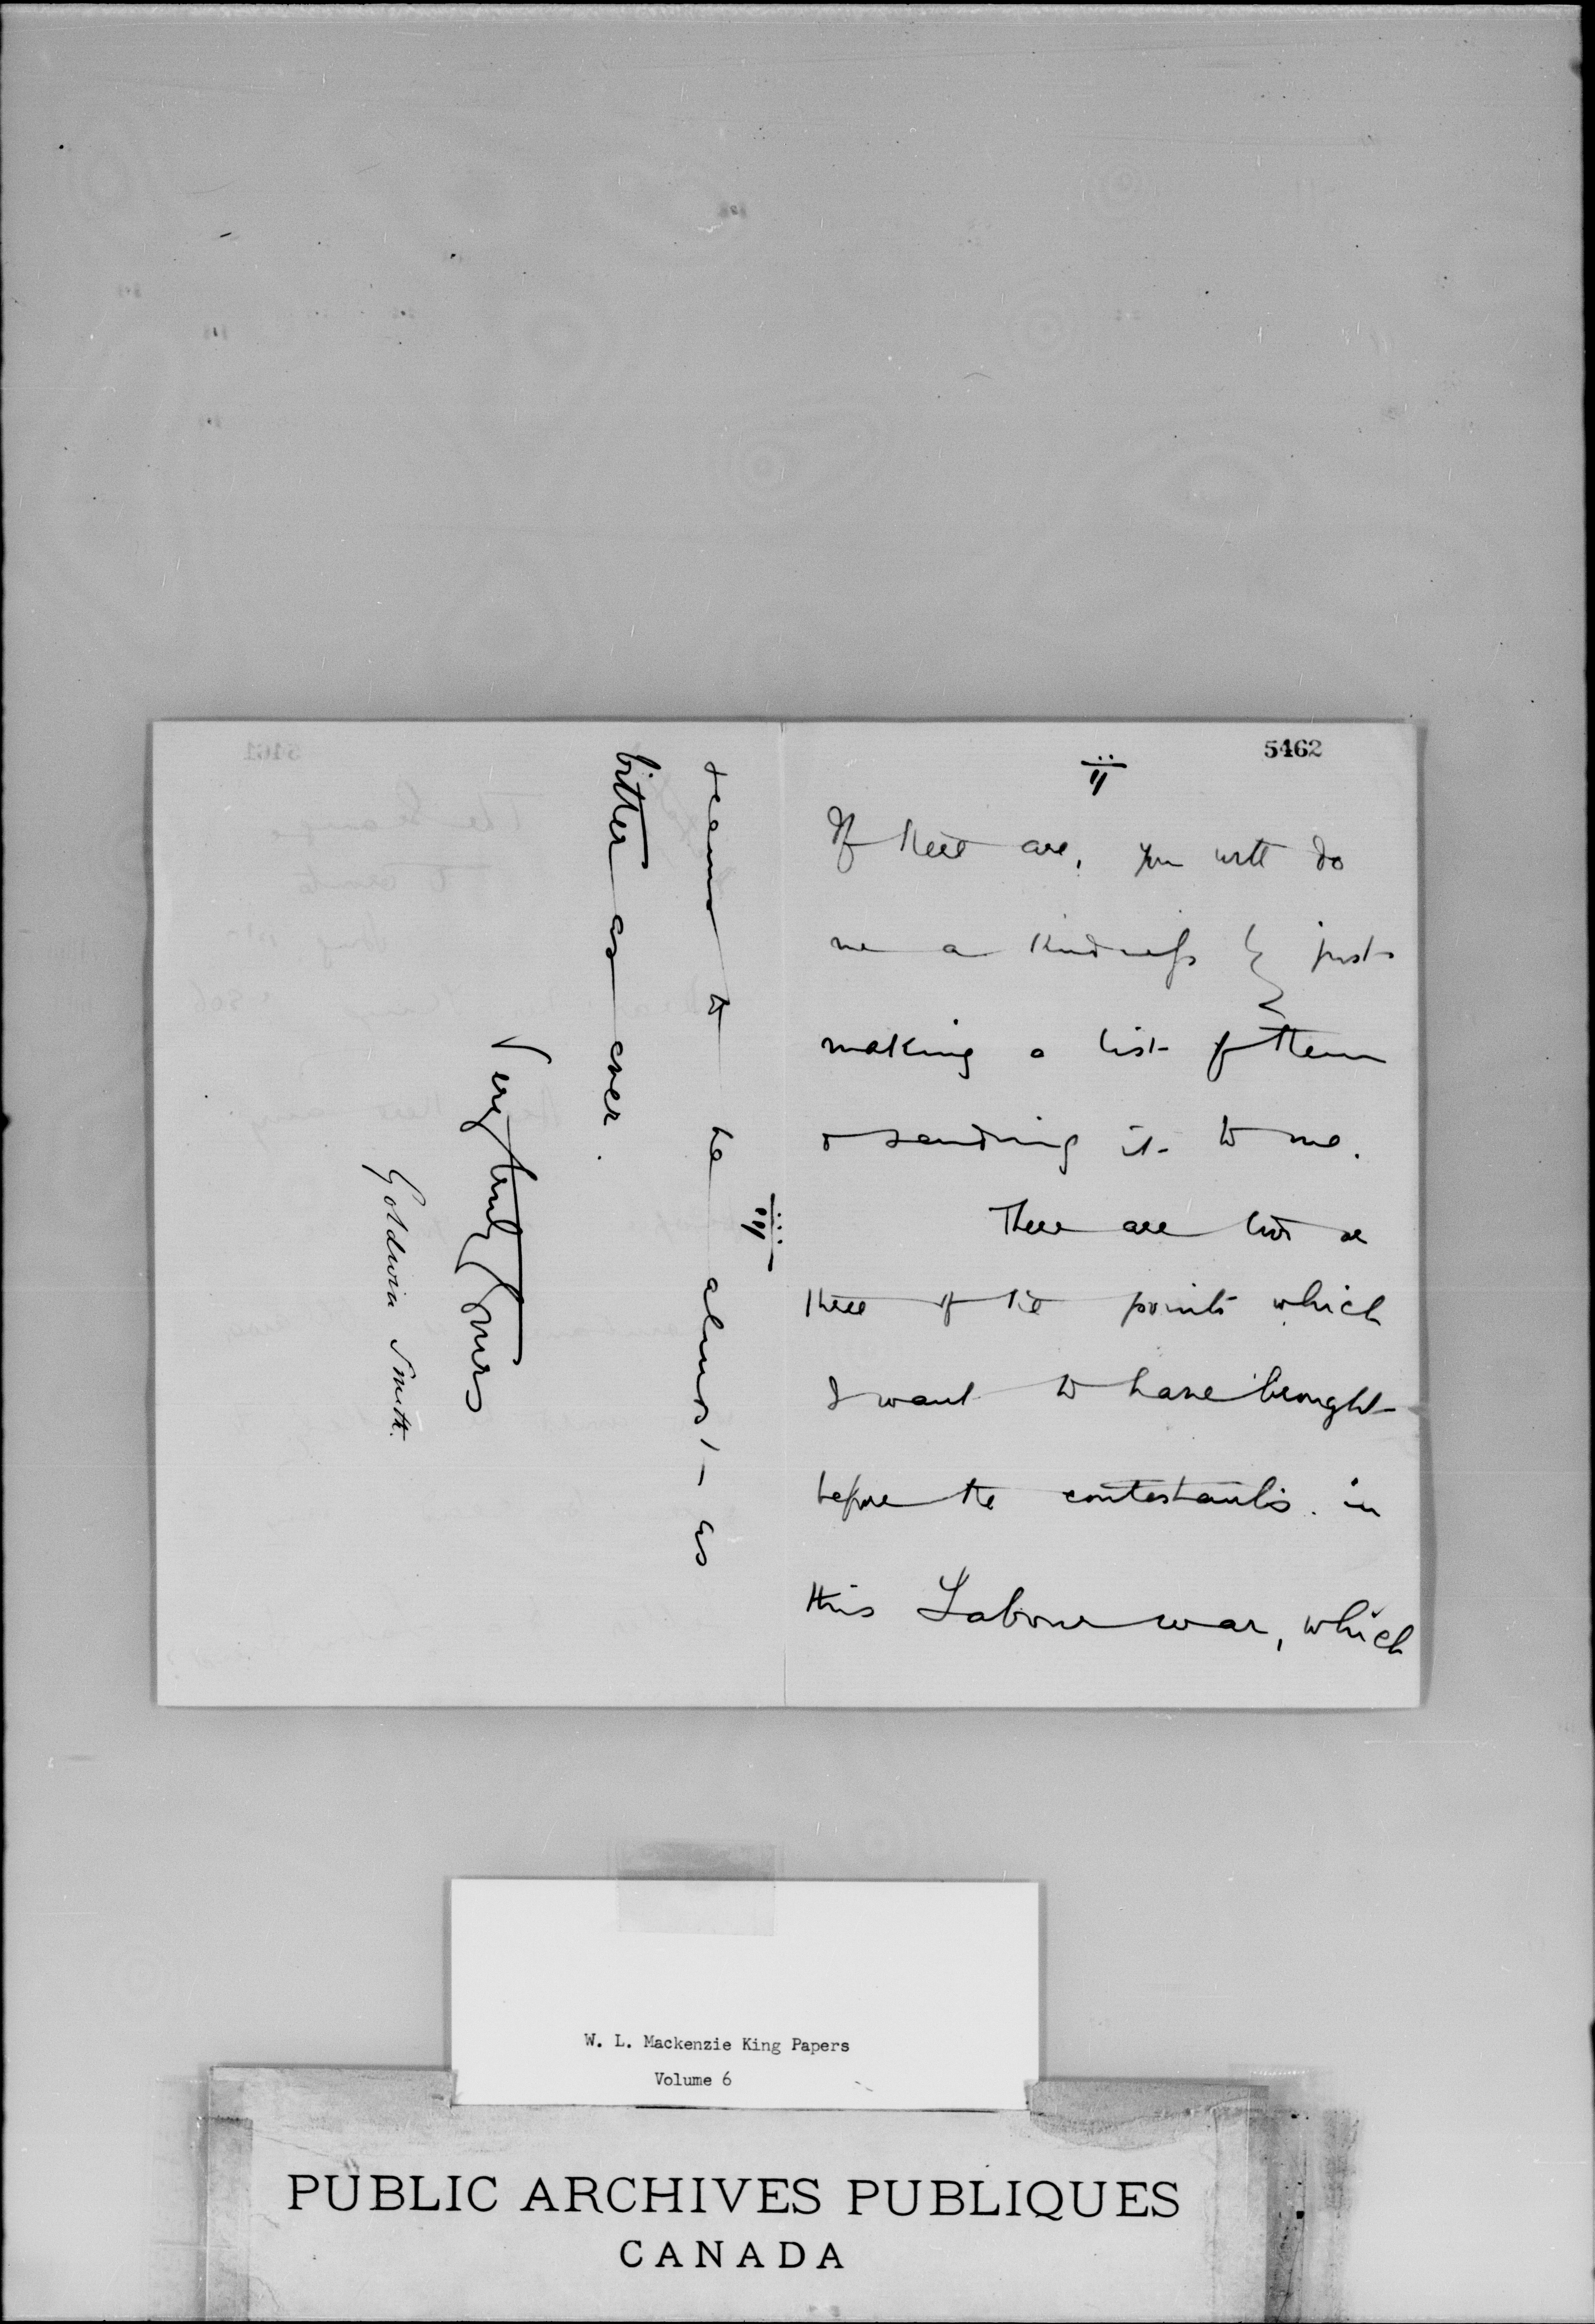 5462
ii
If there are, you will do
me a kindness by just
making a list of them
& sending it to me.
There are two or
three of the points which
I want to have brought
before the contestants in
this Labour war, which
iii
seems to be almost as
bitter as ever.
Very truly Yours
Goldwin Smith.
W. L. Mackenzie King Papers
Volume 6
PUBLIC ARCHIVES PUBLIQUES
CANADA